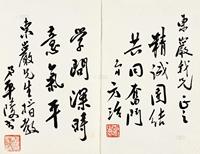 東嚴我兄正之
精誠團結
共同奮鬥
方治
學問深時
意氣平
東嚴先生指教